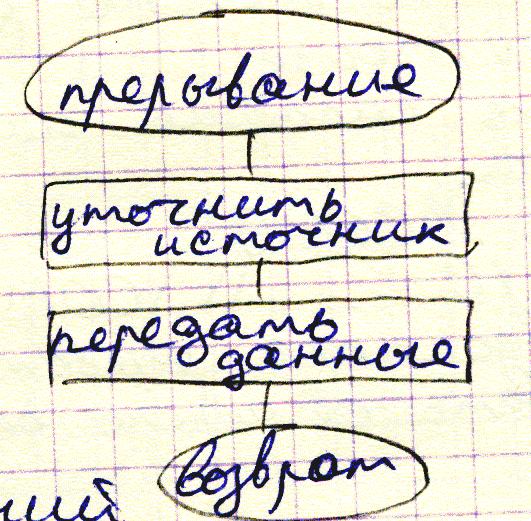 прерывание
уточнить
источник
передать
данные
возврат
ний